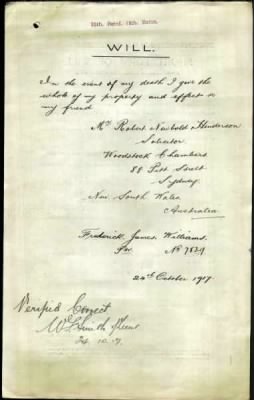 WILL.
In the event of my death I give the
whole of my property and effects to
my friend
Mr Robert Newbold Henderson
Solicitor
Woodstock Chambers
88 Pitt Street
Sydney
New South Wales
Australia
Frederick James Williams.
24th October 1917
Verified Correct
Smith